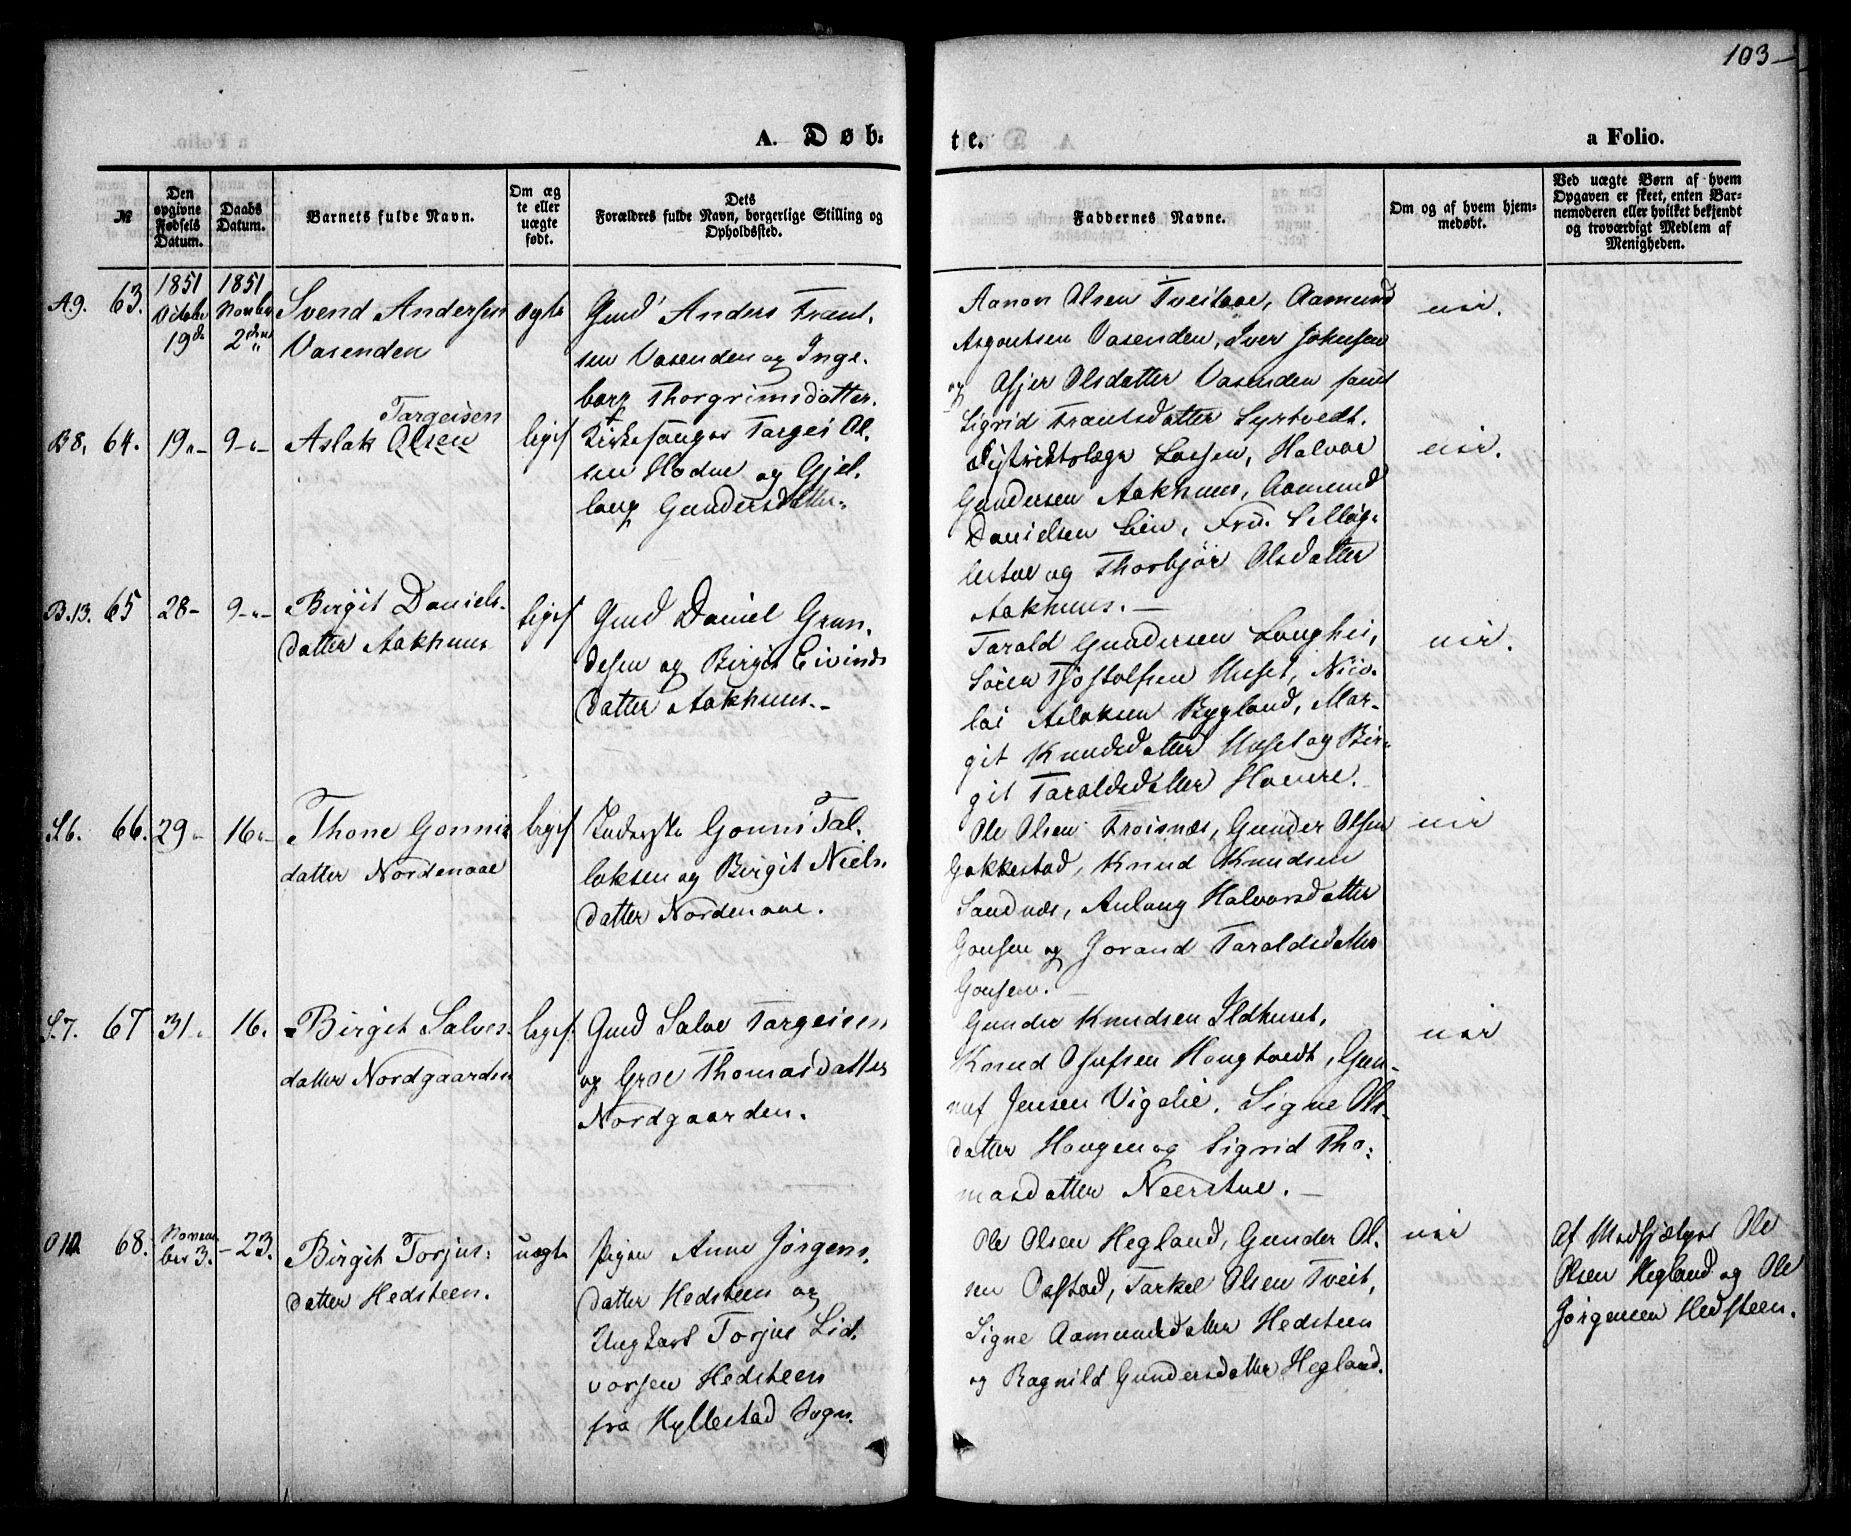 103
A. Døb- te. a Folio.
№
Den opgivne Fødsels Datum.
Daabs Datum.
Barnets fulde Navn.
Om ægte eller uægte født.
Dets Forældres fulde Navn, borgerlige Stilling og Opholdssted.
Faddernes Navne.
Om og af hvem hjemmedøbt.
Ved uægte Børn af hvem Opgaven er skeet, enten Barnemoderen eller hvilket bekjendt og troværdigt Medlem af Menigheden.
A9. 63.
1851
19de
1851
2den
Svend Andersen
Vasenden
ægte
Gmd Anders Frant-
sen Vasenden og Inge-
borg Thorgrimsdatter.
Aanon Olsen Tveitaae, Aamund
Asgoutsen Vasenden, Iver Johnsen
og Asjer Olsdatter Vasenden samt
Sigrid Frantsdatter Syrtvedt.
nei.
B8. 64. 19 9
Targeisen
Aslak Olsen
ligesf
Kirkesanger Targei Ol-
sen Hodne og Gjel-
laug Gundersdatter.
Distriktslæge Larsen, Halvor
Gundersen Aakhuus, Aamund
Danielsen Lien, Frd.
og Thorbjør Olsdatter
Aakhuus.
nei.
B.13. 65 28- 9
Birgit Daniels-
datter Aakhuus
ligesf
Gmd Daniel Gun-
dersen og Birgit Eivinds
datter Aakhuus.
Tarald Gundersen Langhei,
Søren Tjostolfsen Huset, Nico-
lai Aslaksen Bygland, Mar-
git Knudsdatter Huset og Bir-
git Taraldsdatter
nei.
S.6. 66. 29 16
Thone Gonnis
datter Nordenaae
ligesf
Inderste Gonni Tal-
laksen og Birgit Niels
datter Nordenaae.
Ole Olsen Froisnæs, Gunder Olsen
Gakkestad, Knud Knudsen
Sandnæs, Anlaug Halvorsdatter
og Jorand Taraldsdatter
nei
S.7. 67 31 16
Birgit Salves-
datter Nordgaarden
ligesf
Gmd Salve Targeisen
og Groe Thomasdatter
Nordgaarden.
Gunder Knudsen Ildhuset,
Knud Olufsen Haugtvedt, Gun-
nuf Jensen Vigelie, Signe Ols-
datter Haugen og Sigrid Tho-
masdatter Neerstue.
nei
O 12. 68.
Novem
ber 3. 23.
Birgit Torjus-
datter Hedsteen.
uægte
Pigen Anne Jørgens-
datter Hedsteen og
Ungkarl Torjus Lid-
vorsen Hedsteen
fra Hyllestad Sogn.
Ole Olsen Hegland, Gunder Ol-
sen Ostad, Tarkel Olsen Tveit,
Signe Aamundsdatter Hedsteen
og Ragnild Gundersdatter Hegland.
nei
Af Medhjælper Ole
Olsen Hegland og Ole
Jørgensen Hedsteen.